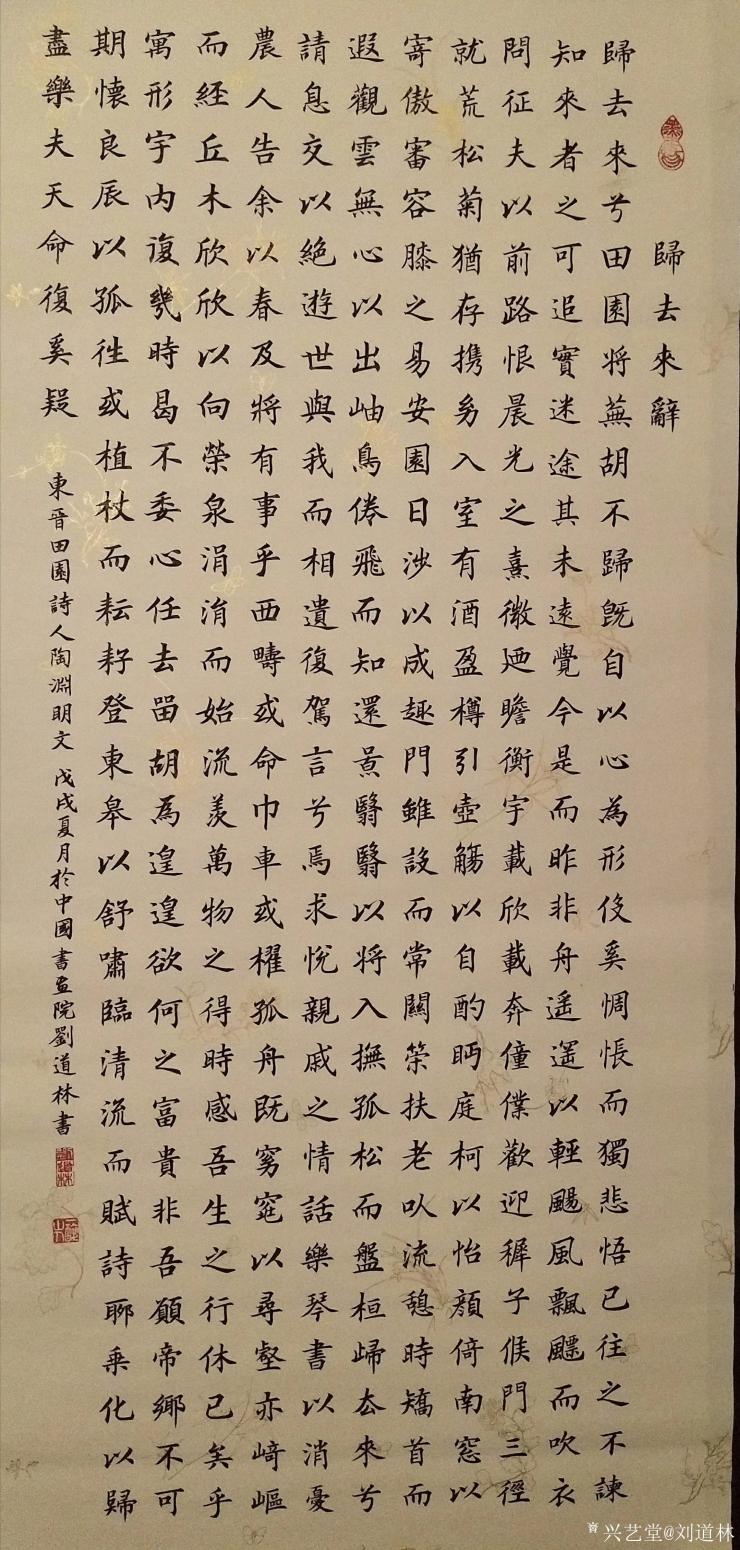 歸去來辭
歸去來兮田園将蕪胡不歸既自以心為形役奚惆悵而獨悲悟已往之不諫
知來者之可追實迷途其未遠覺今是而昨非舟遥遥以輕颺風飄飄而吹衣
問征夫以前路恨晨光之熹微廼瞻衡宇載欣載奔僮僕歡迎穉子候門三徑
就荒松菊猶存携幼入室有酒盈樽引壺觴以自酌眄庭柯以怡顔倚南窓以
寄傲審容膝之易安園日涉以成趣門雖設而常關策扶老以流憩時矯首而
遐觀雲無心以出岫鳥倦飛而知還景翳翳以将入撫孤松而盤桓歸去來兮
請息交以絶遊世與我而相遺復駕言兮焉求悅親戚之情話樂琴書以消憂
農人告余以春及將有事乎西疇或命巾車或櫂孤舟既窈窕以尋壑亦崎嶇
而経丘木欣欣以向榮泉涓涓而始流羨萬物之得時感吾生之行休已矣乎
寓形宇内復幾時曷不委心任去畄胡為遑遑欲何之富貴非吾願帝鄉不可
期懷良辰以孤往或植杖而耘耔登東皋以舒嘯臨清流而賦詩聊乗化以歸
盡樂夫天命復奚疑
東晉田園詩人陶淵明文 戊戌夏月於中國書畫院劉道林書
兴艺堂@刘道林